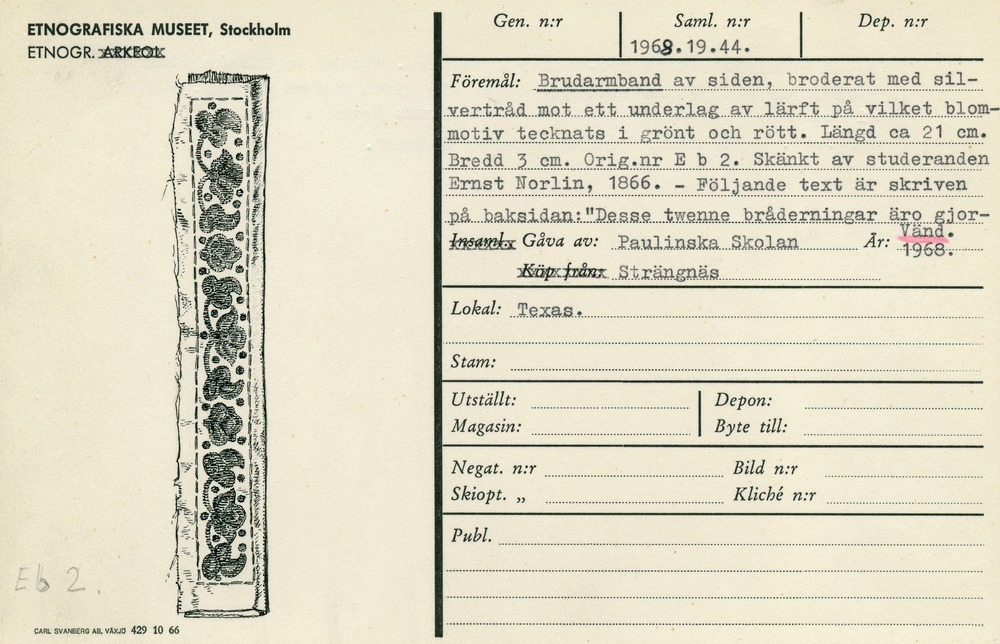 ETNOGRAFISKA MUSEET, Stockholm
ETNOGR. ARKEOL.
Gen. n:r
Saml. n:r
Dep. n:r
1968.19.44.
Föremål: Brudarmband av siden, broderat med sil-
vertråd mot ett underlag av lärft på vilket blom-
motiv tecknats i grönt och rött. Längd ca 21 cm.
Bredd 3 cm. Orig.nr E b 2. Skänkt av studeranden
Ernst Norlin, 1866. - Följande text är skriven
på baksidan:"Desse twenne bråderningar äro gjor-
Vänd.
Insaml. Gåva av: Paulinska Skolan År: 1968.
Köp från: Strängnäs
Lokal: Texas.
Stam:
Utställt:
Depon:
Magasin:
Byte till:
Negat. n:r
Bild n:r
Skiopt. „
Kliché n:r
Publ.
Eb 2.
CARL SVANBERG AB, VÄXJÖ 429 10 66